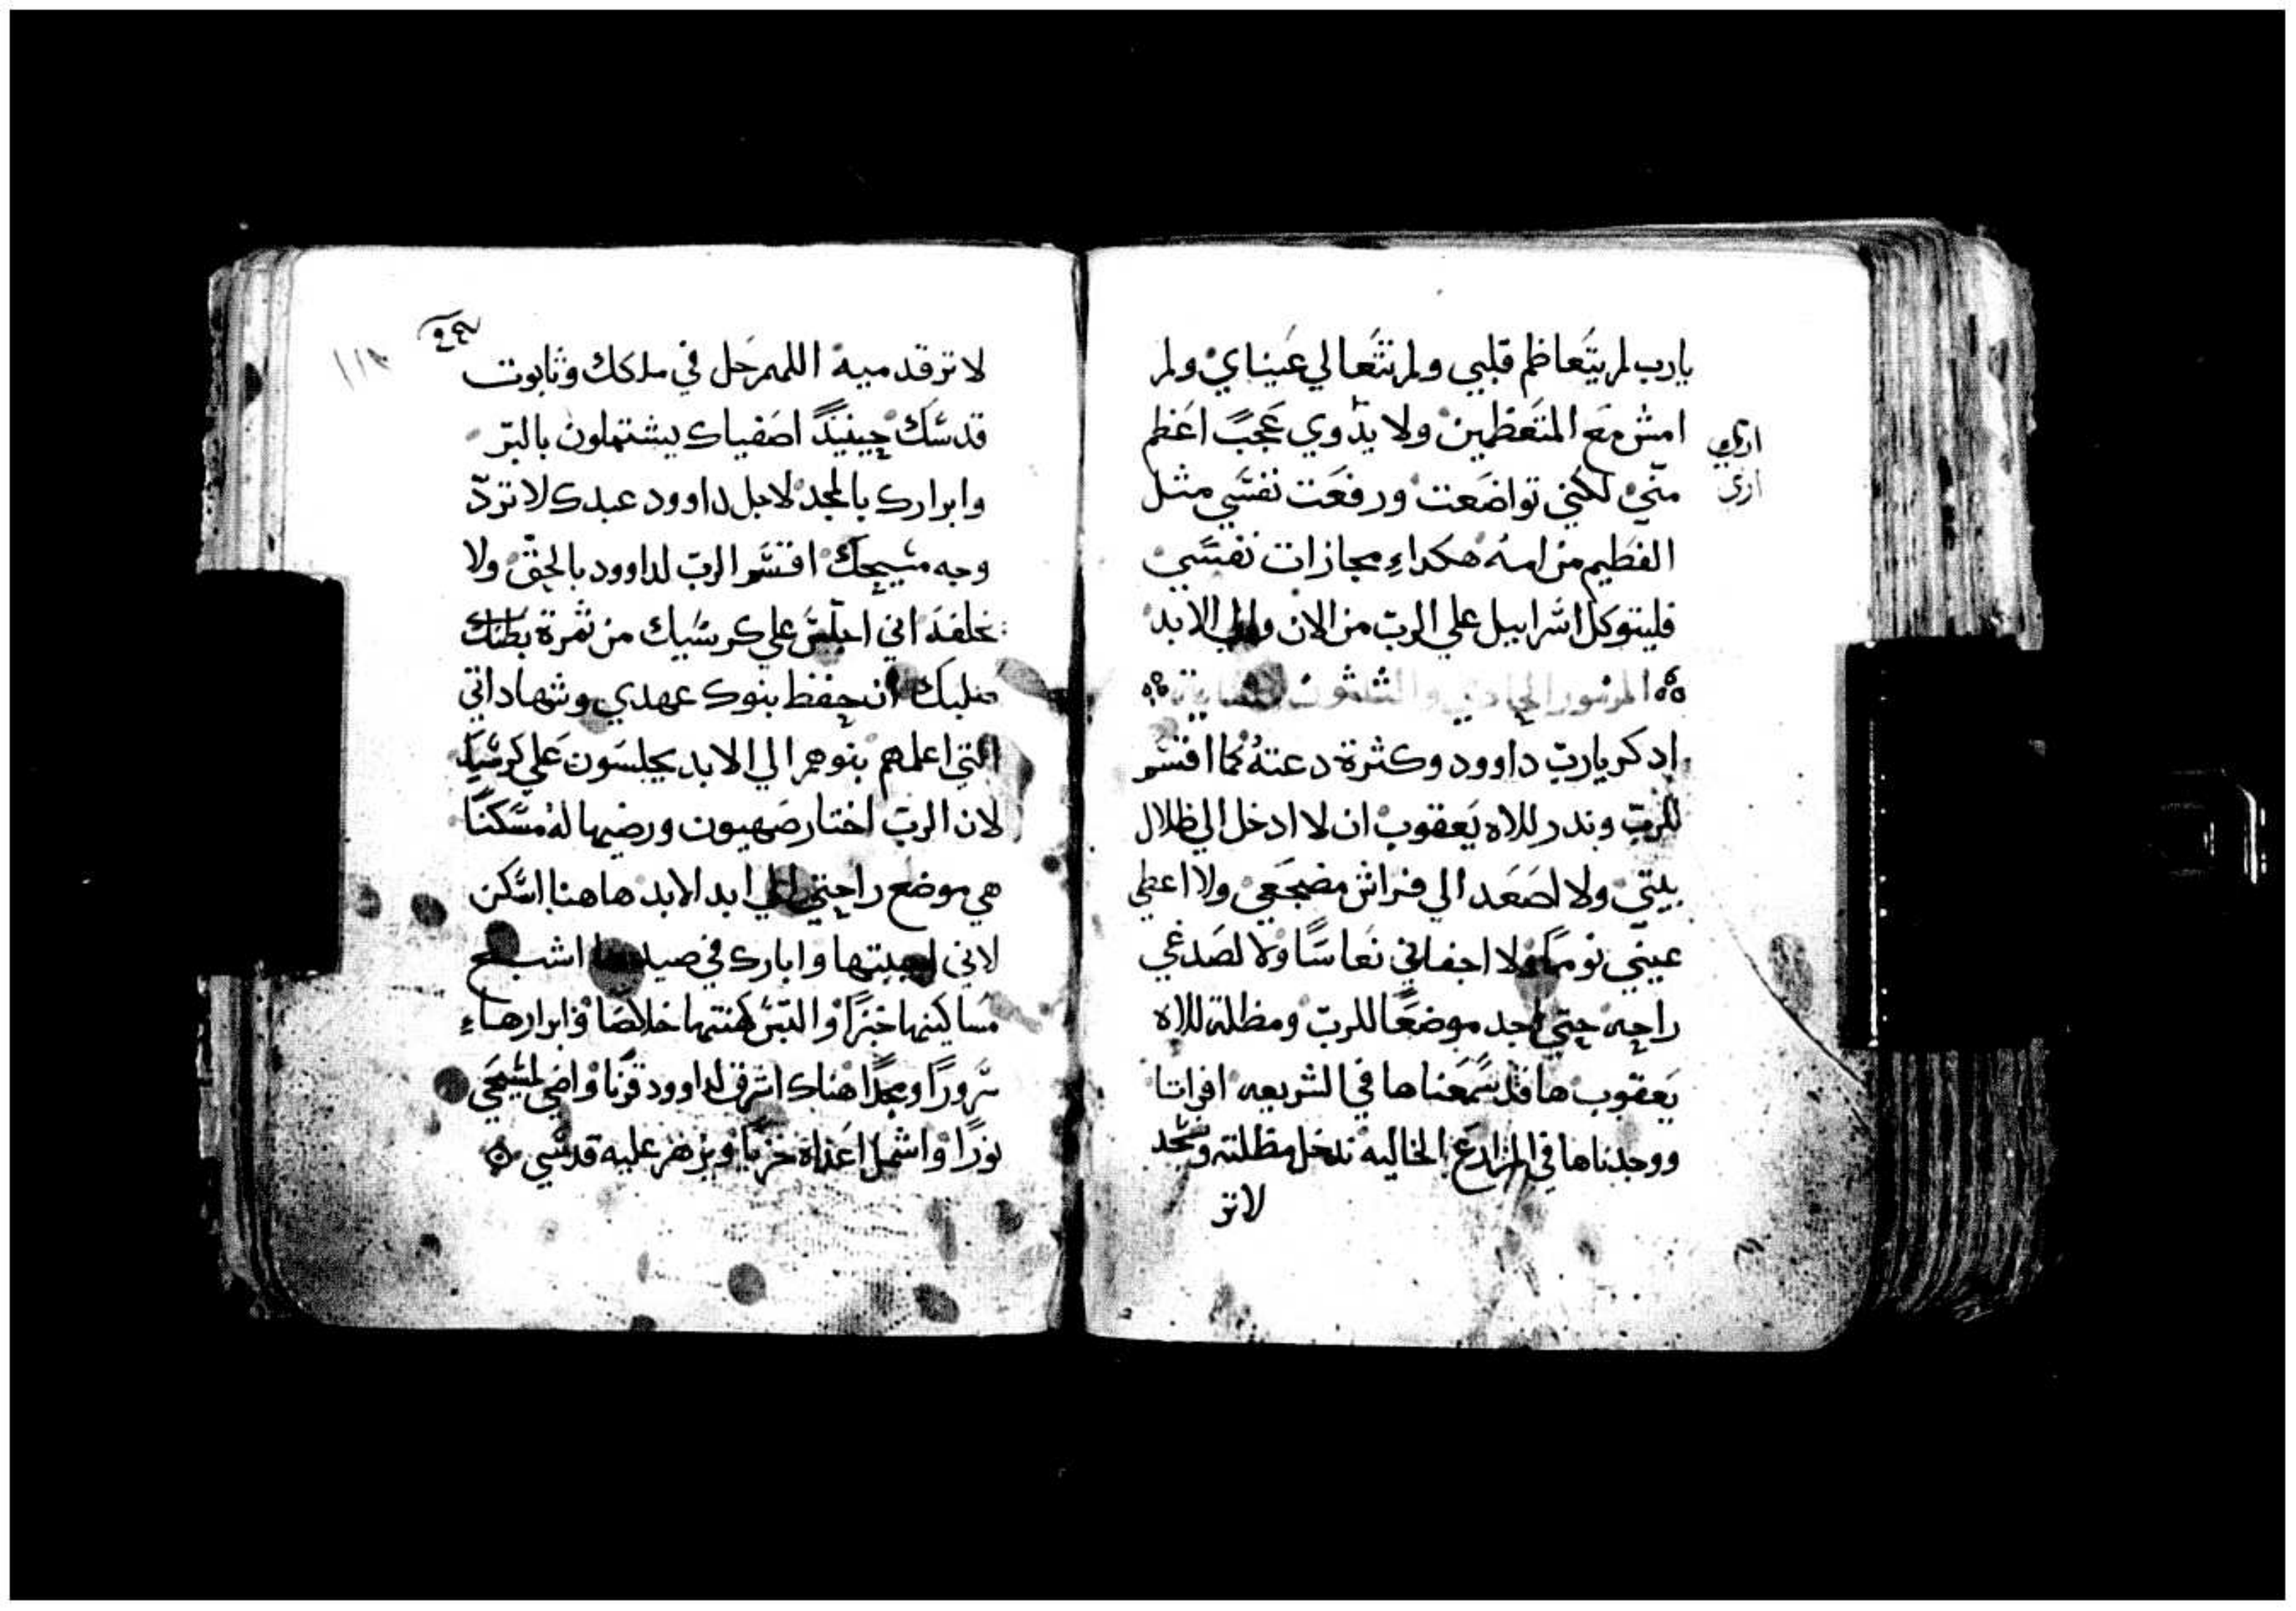 يارب لم يتَعاظم قلبي ولم تتَعالي عَيناي ولم
امش مَع المتَعَظمين ولا بذوي عَجبً اعَظم
منّي لكنني تواضَعت ورفعَت نفسَي مثل
الفَطيم من امه هكداء مجازات نفسَي
فليتوكل اسَرابيل علي الربّ من الان والي الابد
المزمور الحادي والثلثون
ادكر ياربّ داوود وكثرة دعتهُ كما اقسَم
للربّ وندر للاه يَعقوب ان لا ادخل الي ظلال
بيتي ولا اصَعَد الي فراش مضجَعي ولا اعطي
عينَي نومًا ولا اجفاني نعَاسًا ولا لصَدغي
راحه حتي اجد موضعًا للربّ ومظلة للاه
يَعقوب ها قد سَمعَناها في الشريعه افراتا
ووجدناها في المزارع الخاليه ندخل مظلته ونسَجد
لاتر
ارى
لاترقدميه اللهم حَل في ملكك وتابوت
قدسَك حينيدً اصَفياك يشتملون بالبرّ
وابرارك بالمجد لاجل داوود عبدك لا تردّ
وجه مسَيحك اقسَم الربّ لداوود بالحقّ ولا
يخلفه اني اجلسَ علي كرسَيك من ثمرة بطنك
صلبك ان حفظ بنوك عهدي وشهاداتي
التي اعلمهم بنوهم الي الابد يجلسَون عَلي كرسَيك
لان الربّ اختار صَهيون ورضيها له مسَكنًا
هي موضع راحتي الي ابد الابد هاهنا اسَكن
لاني احببتها وابارك في صيدها اشبع
مسَاكينها خبزًا والبسَ كهنتها خلاصَا وابرارهاء
سَرورًا ومجدًا هناك اشرق لداوود قرنًا واضي لمسَيحَي
نورًا واشمل اعَداه خزيًا ويزهر عليه قدسَي